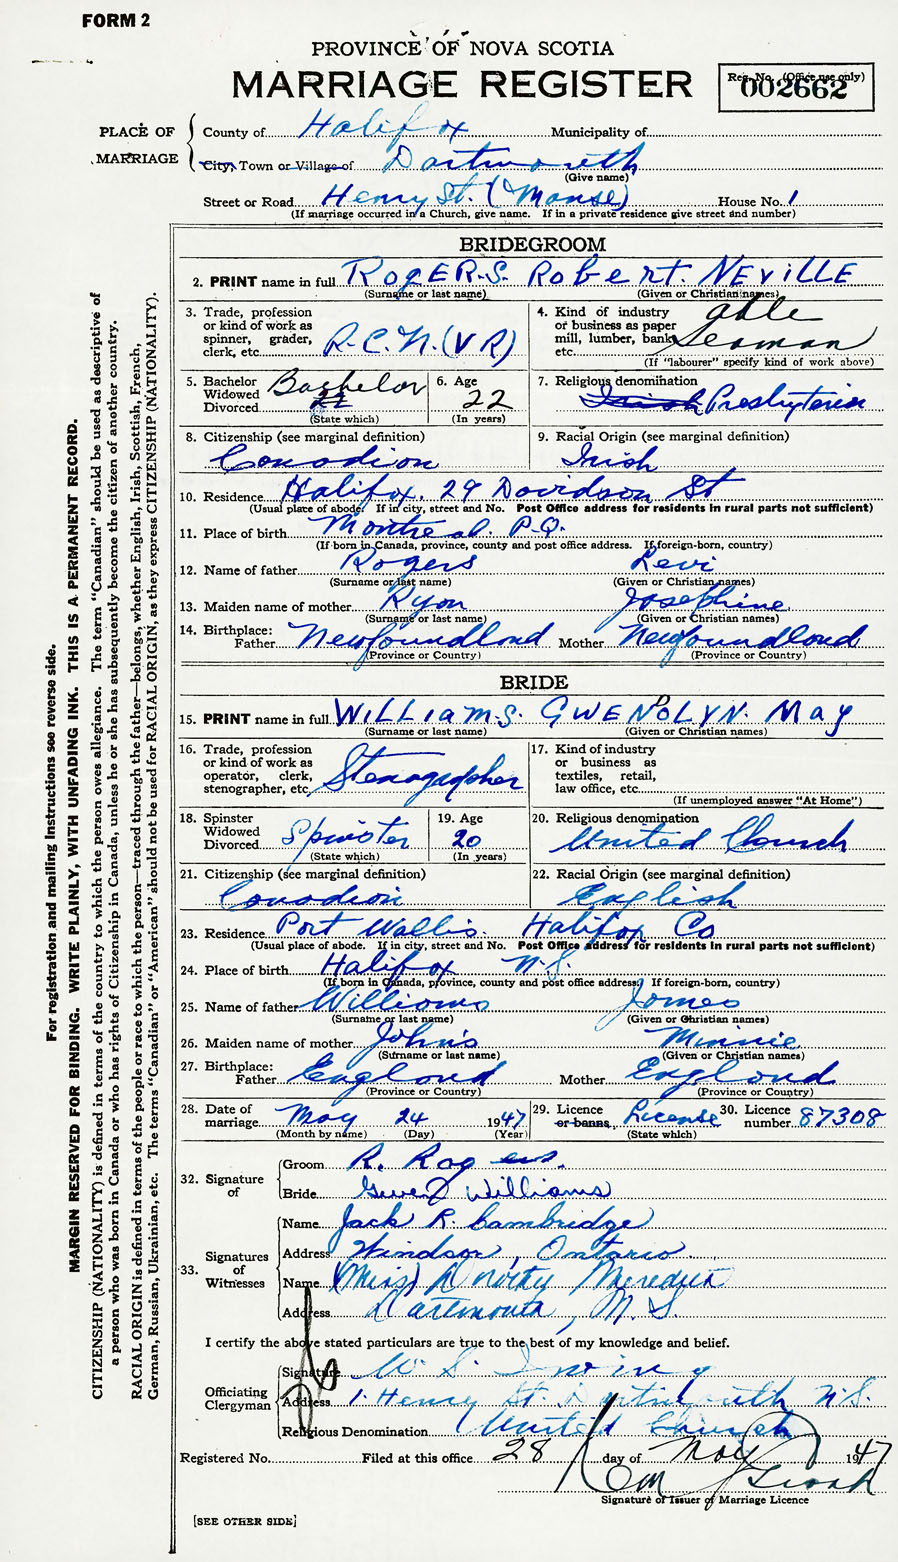 FORM 2
PROVINCE OF NOVA SCOTIA
MARRIAGE REGISTER
Reg. No. (Office use only)
002662
PLACE OF MARRIAGE
County of Halifax Municipality of
City, Town or Village of Dartmouth
(Give name)
Street or Road Henry St. (Manse) House No. 1
(If marriage occurred in a Church, give name. If in a private residence give street and number)
BRIDEGROOM
2. PRINT name in full ROGERS. Robert. NEVILLE
(Surname or last name) (Given or Christian names)
3. Trade, profession or kind of work as spinner, grader, clerk, etc. R.C.N.(VR)
4. Kind of industry or business as paper mill, lumber, bank, etc. able Seaman
(If "labourer" specify kind of work above)
5. Bachelor Widowed Divorced Bachelor 22
(State which)
6. Age 22
(In years)
7. Religious denomination Irish Presbyterian
8. Citizenship (see marginal definition)
Canadian
9. Racial Origin (see marginal definition)
Irish
10. Residence Halifax. 29 Davidson St
(Usual place of abode. If in city, street and No. Post Office address for residents in rural parts not sufficient)
11. Place of birth Montreal. P.Q.
(If born in Canada, province, county and post office address. If foreign-born, country)
12. Name of father Rogers Levi
(Surname or last name) (Given or Christian names)
13. Maiden name of mother Ryan Josephine
(Surname or last name) (Given or Christian names)
14. Birthplace: Father Newfoundland Mother Newfoundland
(Province or Country) (Province or Country)
BRIDE
15. PRINT name in full WILLIAMS. GWENDOLYN. MAY
(Surname or last name) (Given or Christian names)
16. Trade, profession or kind of work as operator, clerk, stenographer, etc. Stenographer
17. Kind of industry or business as textiles, retail, law office, etc.
(If unemployed answer "At Home")
18. Spinster Widowed Divorced Spinster
(State which)
19. Age 20
(In years)
20. Religious denomination
United Church
21. Citizenship (see marginal definition)
Canadian
22. Racial Origin (see marginal definition)
English
23. Residence Port Wallis. Halifax Co
(Usual place of abode. If in city, street and No. Post Office address for residents in rural parts not sufficient)
24. Place of birth Halifax N.S.
(If born in Canada, province, county and post office address. If foreign-born, country)
25. Name of father Williams James
(Surname or last name) (Given or Christian names)
26. Maiden name of mother Johns Minnie
(Surname or last name) (Given or Christian names)
27. Birthplace: Father England Mother England
(Province or Country) (Province or Country)
28. Date of marriage May 24 1947
(Month by name) (Day) (Year)
29. Licence or banns License
(State which)
30. Licence number 87308
32. Signature of
Groom R. Rogers.
Bride Gwen Williams
33. Signatures of Witnesses
Name Jack R. Cambridge
Address Windsor, Ontario.
Name (Miss) Dorothy Meredith
Address Dartmouth, N.S.
I certify the above stated particulars are true to the best of my knowledge and belief.
Officiating Clergyman
Signature W. S. Irving
Address 1. Henry St. Dartmouth N.S.
Religious Denomination United Church
Registered No. Filed at this office 28 day of May 1947
Signature of Issuer of Marriage Licence
[SEE OTHER SIDE]
For registration and mailing instructions see reverse side.
MARGIN RESERVED FOR BINDING. WRITE PLAINLY, WITH UNFADING INK. THIS IS A PERMANENT RECORD.
CITIZENSHIP (NATIONALITY) is defined in terms of the country to which the person owes allegiance. The term "Canadian" should be used as descriptive of
a person who was born in Canada or who has rights of Citizenship in Canada, unless he or she has subsequently become the citizen of another country.
RACIAL ORIGIN is defined in terms of the people or race to which the person—traced through the father—belongs, whether English, Irish, Scottish, French,
German, Russian, Ukrainian, etc. The terms "Canadian" or "American" should not be used for RACIAL ORIGIN, as they express CITIZENSHIP (NATIONALITY).